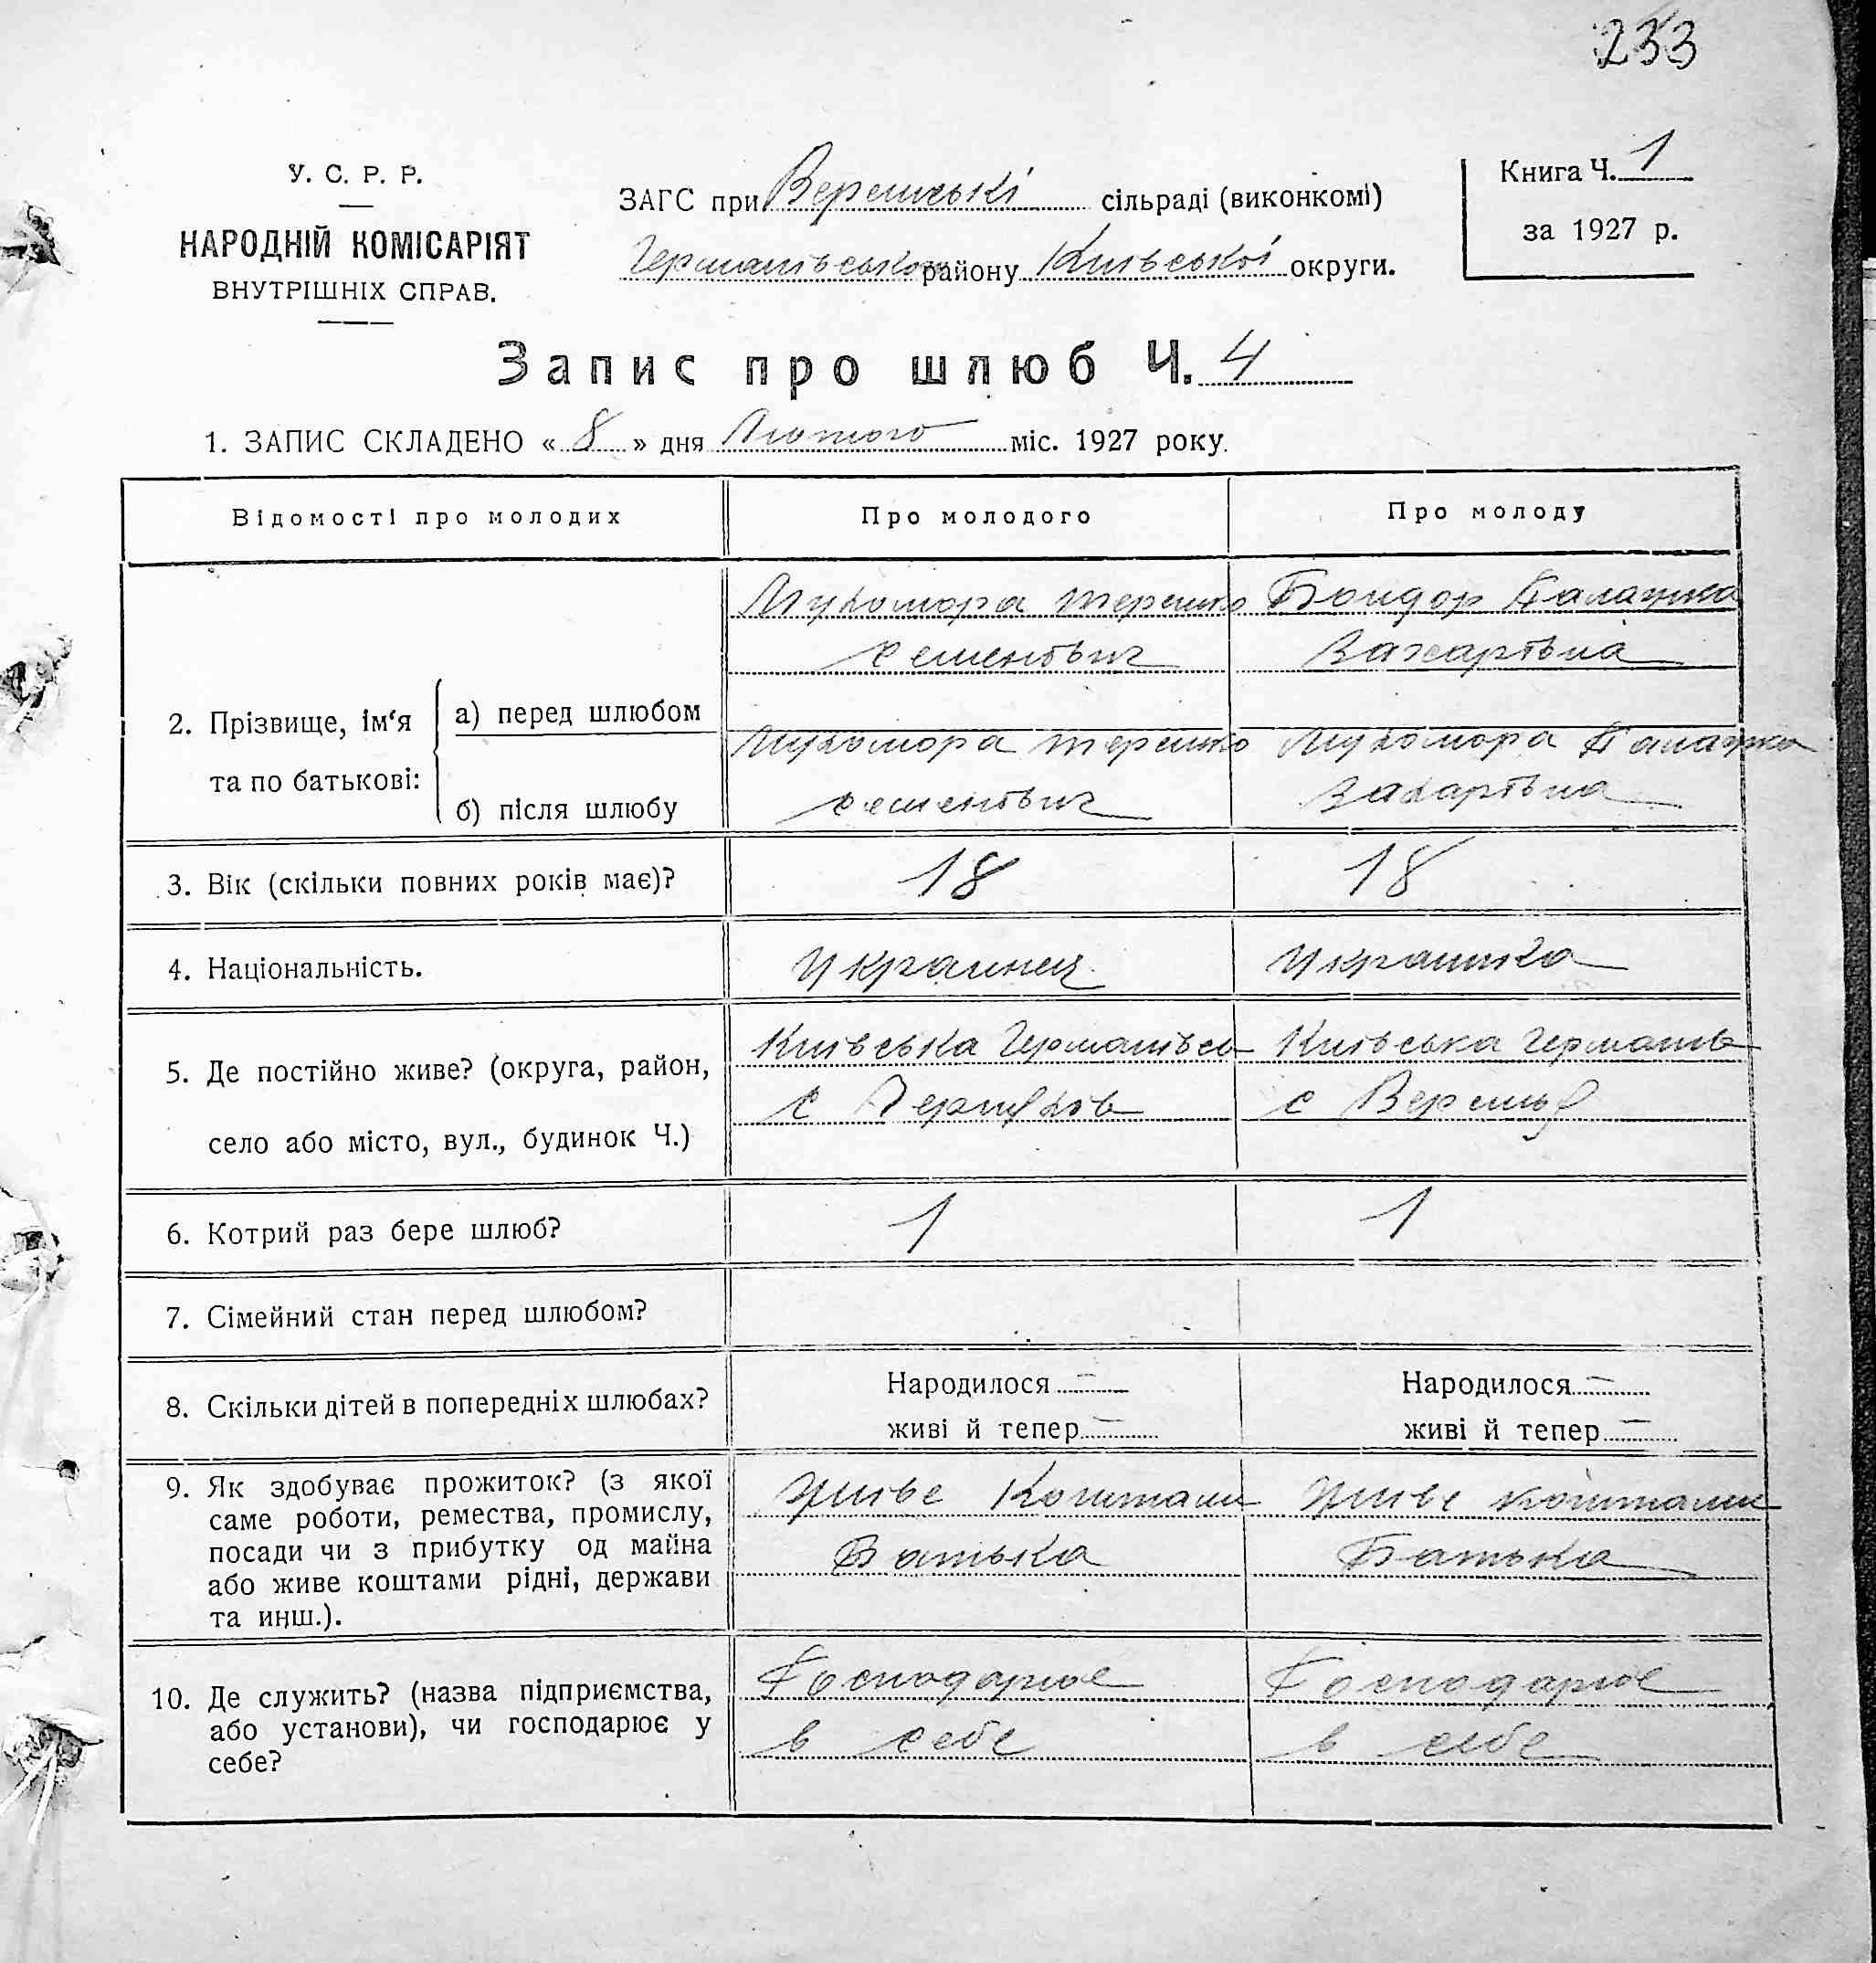 233
У. С. Р. Р.
НАРОДНІЙ КОМІСАРІЯТ
ВНУТРІШНІХ СПРАВ.
ЗАГС при сільраді (виконкомі)
Германівського району Київської округи.
Книга Ч. 1
за 1927 р.
Запис про шлюб Ч. 4
1. ЗАПИС СКЛАДЕНО « 8 » дня Лютого міс. 1927 року.
Відомості про молодих Про молодого Про молоду
2. Прізвище, ім‘я та по батькові:
а) перед шлюбом
Мухомора Терешко
Семенович
Бондор Палажка
Захарівна
б) після шлюбу
Мухомора Терешко
Семенович
Мухомора Палажка
Захарівна
3. Вік (скільки повних років має)? 18 18
4. Національність. Украинец Украинка
5. Де постійно живе? (округа, район,
село або місто, вул., будинок Ч.)
Київська Германівсь
с
Київська Германів
с
6. Котрий раз бере шлюб? 1 1
7. Сімейний стан перед шлюбом?
8. Скільки дітей в попередніх шлюбах?
Народилося —
живі й тепер —
Народилося —
живі й тепер —
9. Як здобуває прожиток? (з якої
саме роботи, ремества, промислу,
посади чи з прибутку од майна
або живе коштами рідні, держави
та инш.).
Живе Коштами
Батька
Живе коштами
Батька
10. Де служить? (назва підприємства,
або установи), чи господарює у
себе?
Господарює
в себе
Господарює
в себе